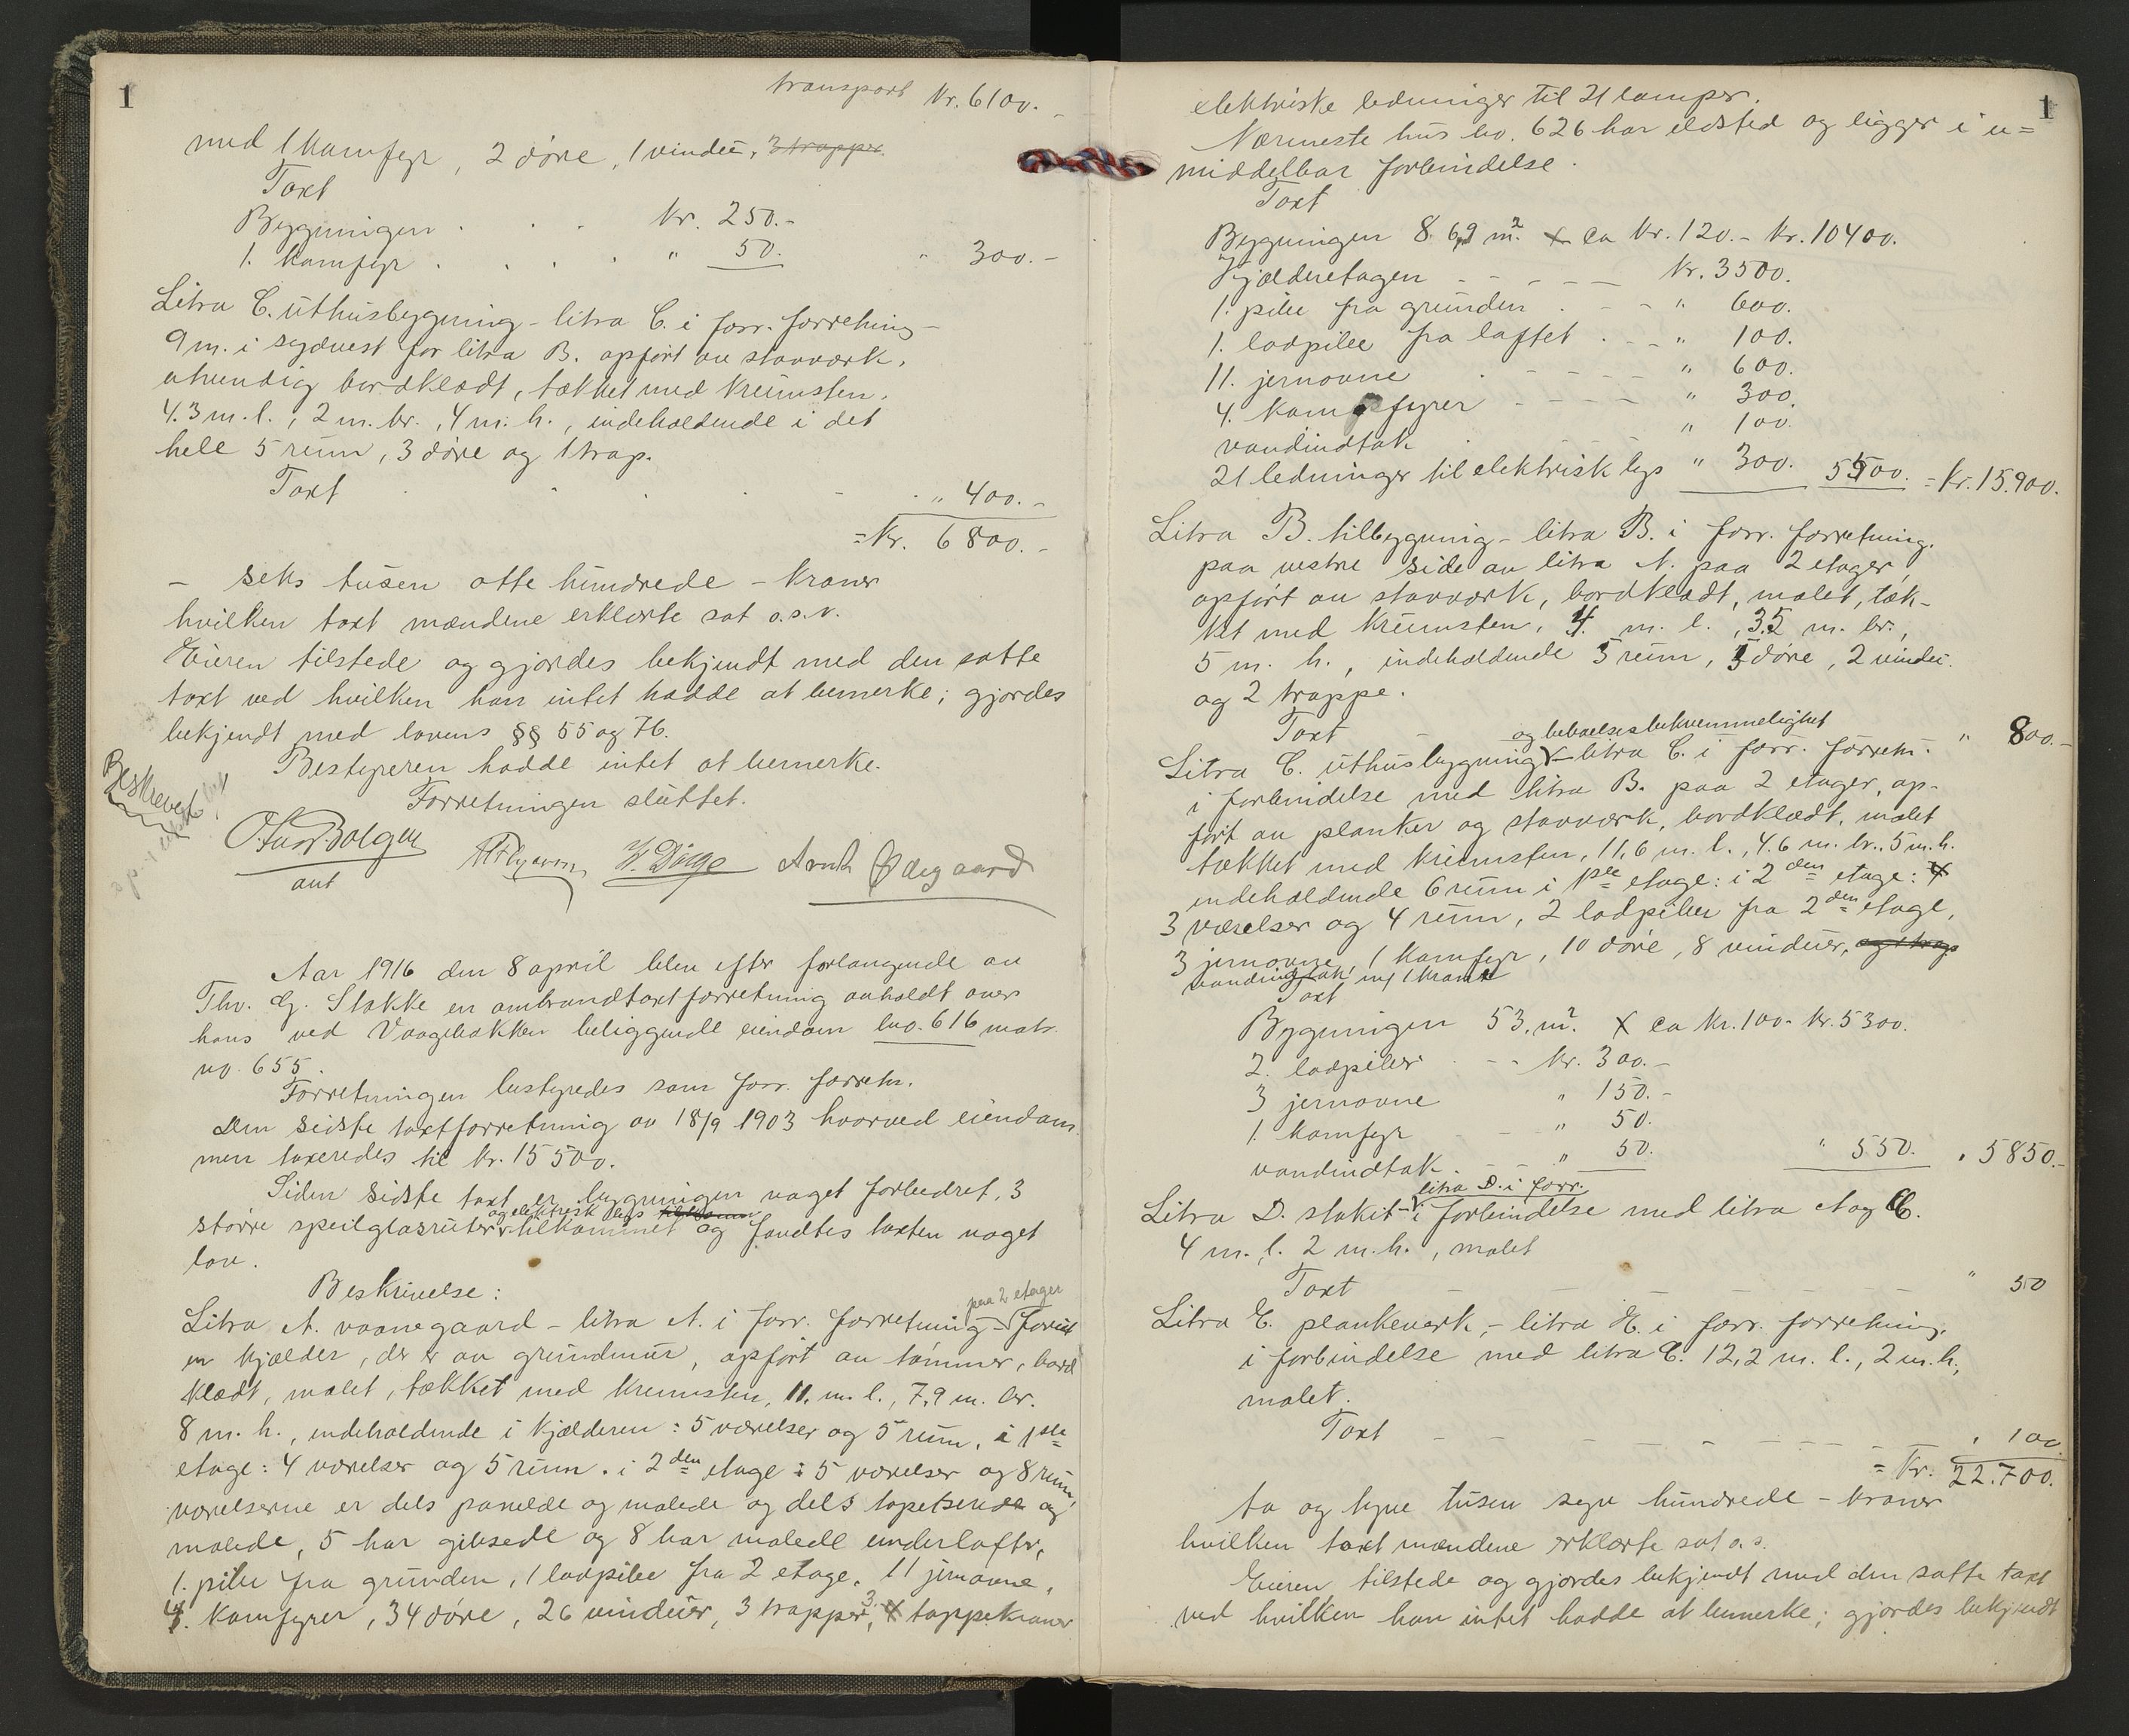 1
transport Kr. 6100.-
med 1 kamfyr, 2 døre, 1 vindu, 3 trapper.
Taxt
Bygningen . . . Kr. 250.-
1. kamfyr . . . . " 50. " 300.-
Litra C. uthusbygning - litra C. i forr. forretning -
9 m. i sydvest for litra B. opført av stavverk,
utvendig bordklædt, tækket med krumsten.
4.3 m. l., 2 m. br., 4 m. h., indeholdende i det
hele 5 rum, 3 døre og 1 trap.
Taxt . . . . - . " 400.-
= Kr. 6800.-
- seks tusen otte hundrede - kroner
hvilken taxt mændene erklærte sat o.s.v.
Eieren tilstede og gjordes bekjendt med den satte
taxt ved hvilken han intet hadde at bemerke; gjordes
bekjendt med lovens §§ 55 og 76.
Bestyreren hadde intet at bemerke.
Forretningen sluttet.
Beskrevet
aut
Arnt Ødegaard
Aar 1916 den 8 april blev efter forlangende av
Thv. G. Stokke en ombrandtaxtforretning avholdt over
hans ved Vaagebakken beliggende eiendom lno. 616 matr.
no. 655.
Forretningen bestyredes som forr. forretn.
Den sidste taxtforretning av 18/9 1903 hvorved eiendom
men taxeredes til kr. 15500.
Siden sidste taxt er bygningen noget forbedret, 3
og elektrisk lys
større speilglasruter tilkommet og fandtes taxten noget
lav.
Beskrivelse:
paa 2 etager
Litra A. vaanegaard - litra A. i forr. forretning -
en kjælder, der er av grundmur, opført av tømmer, bord
klædt, malet, tækket med krumsten, 11. m. l., 7.9 m. br.
8 m. h., indeholdende i kjælderen: 5 værelser og 5 rum, i 1ste
etage: 4 værelser og 5 rum. i 2den etage: 5 værelser og 8 rum,
værelserne er dels panelde og malede og dels tapetserede og
malede, 5 har gibsede og 8 har malede underlofter,
1. pibe fra grunden, 1 ladpibe fra 2 etage, 11 jernovne,
4. kamfyrer, 34 døre, 26 vinduer, 3 trapper, 3 tappekraner
1
elektriske ledninger til 21 lamper.
Nærmeste hus no. 626 har ildsted og ligger i u=
middelbar forbindelse.
Taxt
Bygningen 86,9 m². x ca Kr. 120.- Kr. 10400.
Kjælderetagen - - - - - Kr. 3500.
1. pibe fra grunden . - - " 600.
1. ladpibe fra loftet . - - " 100.
11. jernovne . - - - - " 600.
4. kamfyrer - - - - " 300.
vandindtak . " 100.
21 ledninger til elektrisk lys " 300. 5500. = Kr. 15.900.
Litra B. tilbygning - litra B. i forr. forretning.
paa vestre side av litra A. paa 2 etager,
opført av stavværk, bordklædt, malet, tæk-
ket med krumsten, 4. m. l., 3.5 m. br.,
5 m. h., indeholdende 5 rum, 5 døre, 2 vindu.
og 2 trappe.
Taxt - " 800.-
og beboelsesbekvemmelighet
Litra C. uthusbygning - litra C. i forr. forretn.
i forbindelse med litra B. paa 2 etager, op-
ført av planker og stavværk, bordklædt, malet
tækket med krumsten, 11,6 m. l., 4.6 m. br., 5 m. h.
indeholdende 6 rum i 1ste etage: i 2den etage:
3 værelser og 4 rum, 2 ladpiber fra 2den etage,
3 jernovne, 1 kamfyr, 10 døre, 8 vinduer, og 1 trap
vandindtak m/ 1 kran
Taxt
Bygningen 53. m². x ca Kr. 100.- Kr. 5300.
2. ladpiber . - - Kr. 300.-
3 jernovne " 150.-
1. kamfyr - - " 50.
vandindtak. - - " 50. " 550. " 5850.-
litra D. i forr.
Litra D. stakit - i forbindelse med litra A og C.
4 m. l. 2 m. h., malet
Taxt - - - - " 50
Litra E. plankeverk, - litra E. i forr. forretning,
i forbindelse med litra C. 12,2 m. l., 2 m. h.,
malet.
Taxt - - - - - - - - - " 100.
= Kr. 22.700.
to og tyve tusen syv hundrede - kroner
hvilken taxt mændene erklærte sat o.s.
Eieren tilstede og gjordes bekjendt med den satte taxt
ved hvilken han intet hadde at bemerke; gjordes bekjendt